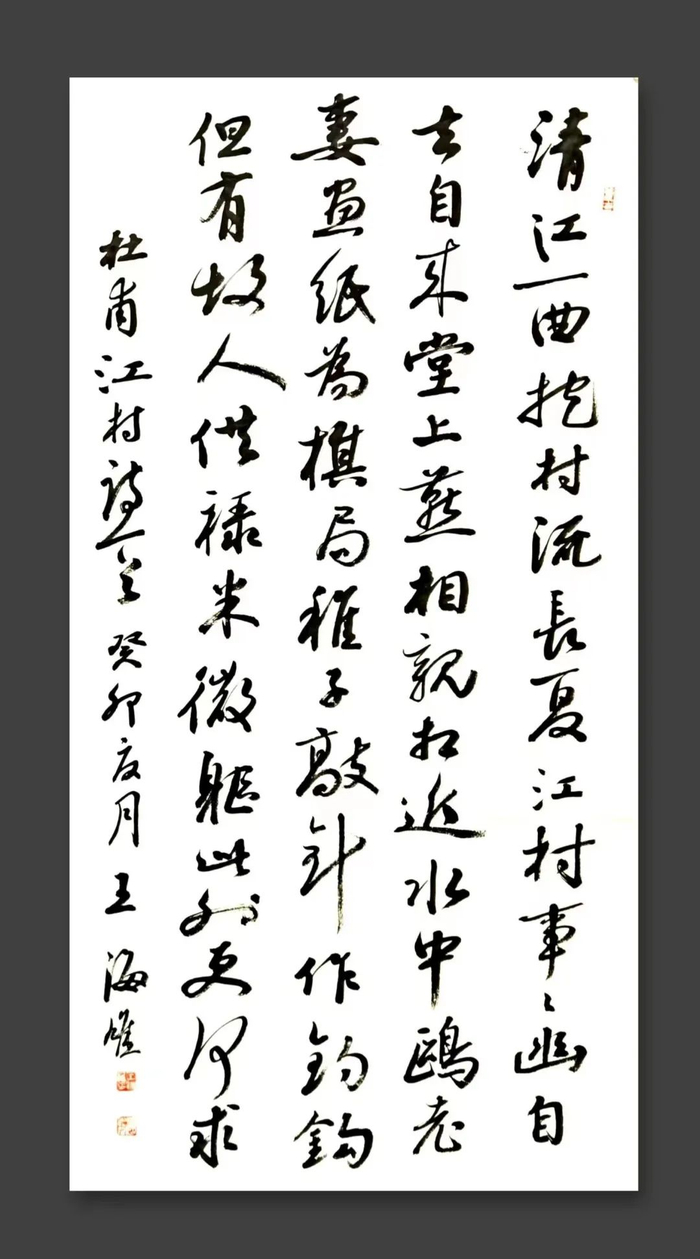 清江一曲抱村流長夏江村事〻幽自
去自来堂上燕相親相近水中鷗老
妻畫紙為棋局稚子敲針作釣鈎
但有故人供禄米微軀此外更何求
杜甫江村詩一首 癸卯夏月王海雄